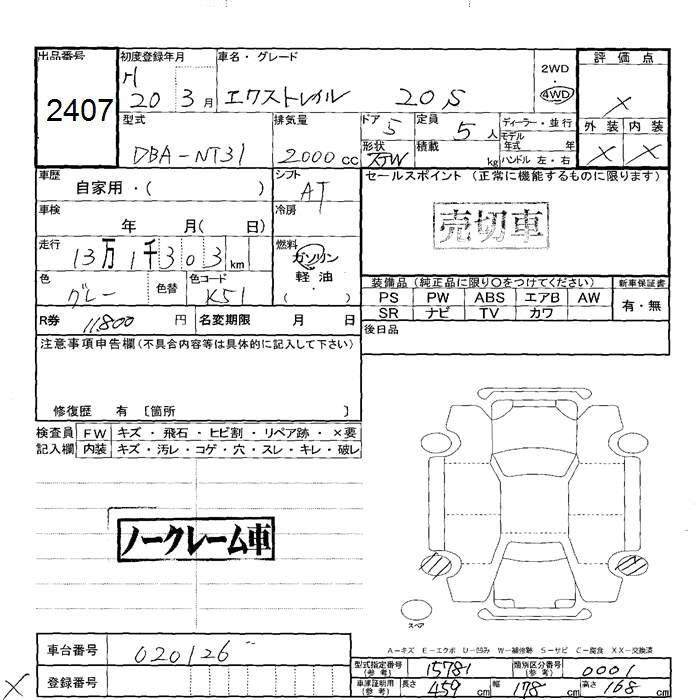 出品番号 初度登録年月 車名・グレード 2WD 評価点
2407 H 20 3月 エクストレイル 20S 4WD X
型式 排気量 ドア 定員 ディーラー・並行 外装 内装
DBA-NT31 2000cc 5 5人 モデル年式 年 X X
形状 積載 kg ハンドル 左・右
車歴 自家用・( ) シフト AT セールスポイント(正常に機能するものに限ります)
車検 年 月( 日) 冷房 売切車
走行 13万1千303km 燃料 ガソリン 軽油 ( )
色 グレー 色替 色コード K51
装備品(純正品に限り○をつけてください) 新車保証書
PS PW ABS エアB AW 有・無
SR ナビ TV カワ
R券 11800円 名変期限 月 日 後日品
注意事項申告欄(不具合内容等は具体的に記入して下さい)
修復歴 有 [箇所 ]
検査員 FW キズ・飛石・ヒビ割・リペア跡・×要
記入欄 内装 キズ・汚レ・コゲ・穴・スレ・キレ・破レ
ノークレーム車
スペア
A-キズ E-エクボ U-凹み W-補修跡 S-サビ C-腐食 XX-交換済
車台番号 020126
型式指定番号(参考) 15781 類別区分番号(参考) 0001
X 登録番号
車庫証明用(参考) 長さ 459cm 幅 178cm 高さ 168cm